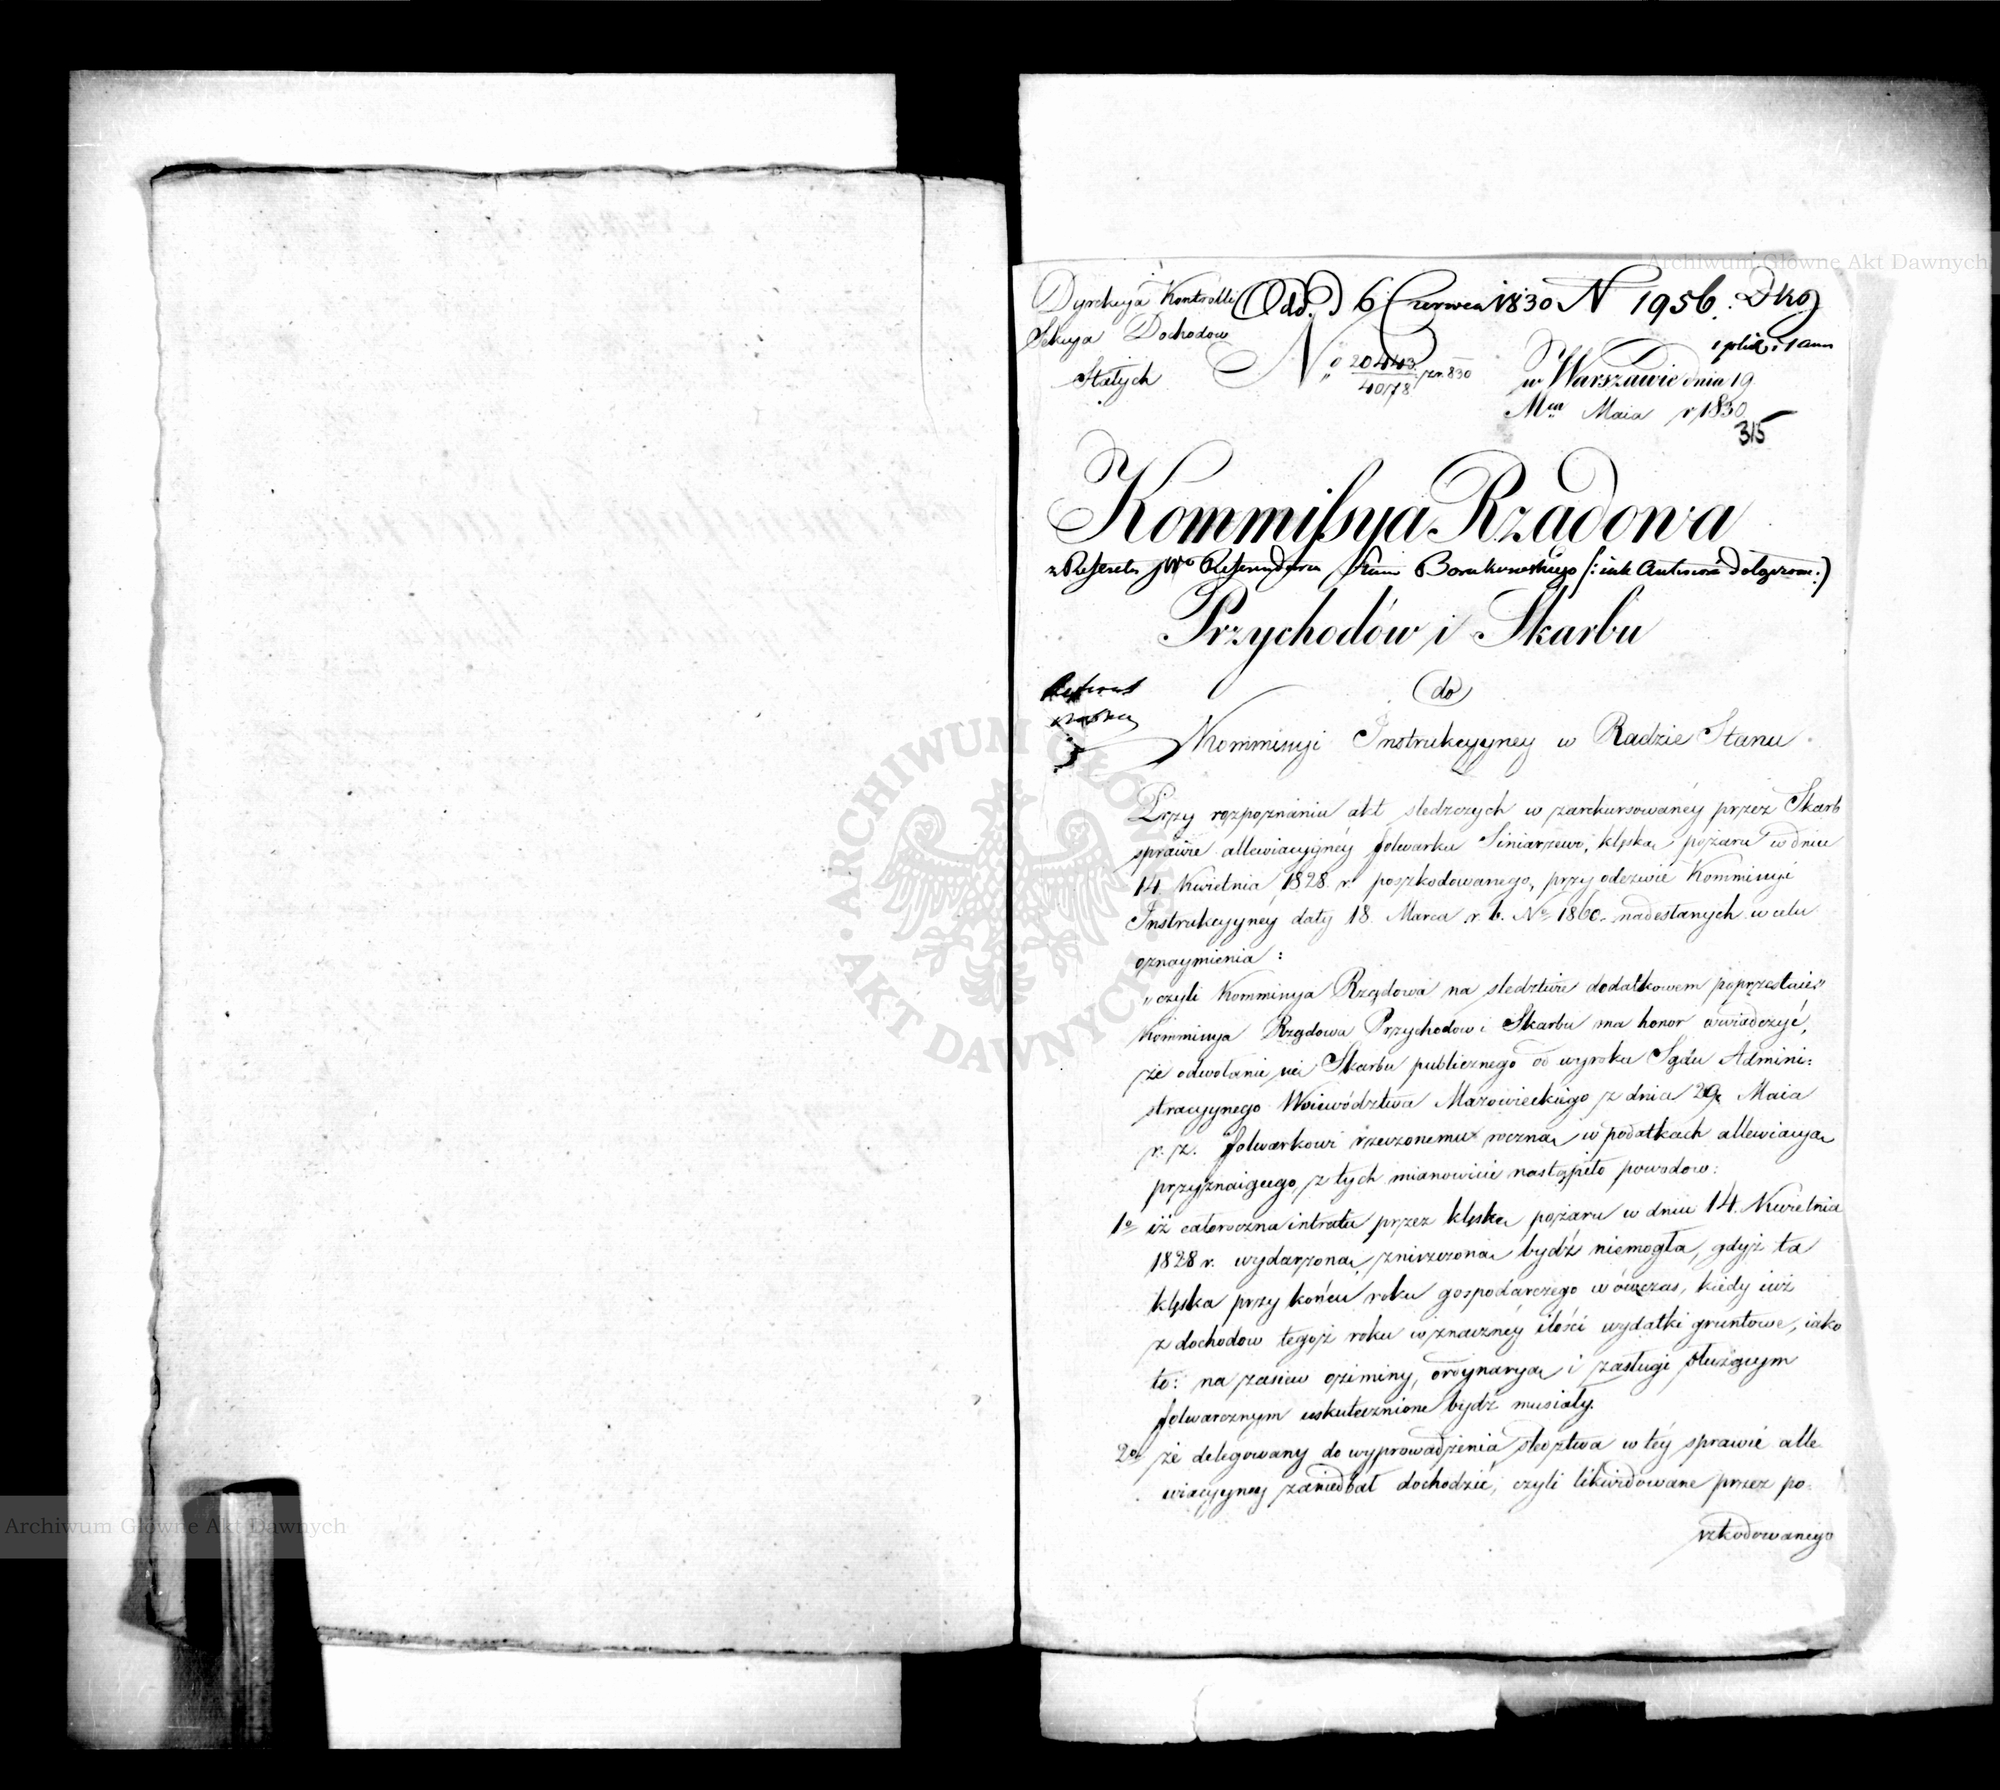 Dyrekcya Kontrolli
Sekcya Dochodow
Stałych
Odd. 6 Czerwca 1830 N 1956.
No 20443/4078 /zr. 830
w Warszawie dnia 19
Mca Maia r. 1830
315
Kommissya Rządowa
z Referatu JWo Referendarza
Przychodów i Skarbu
do
Kommissyi Instrukcyyney w Radzie Stanu.
Przy rozpoznaniu akt śledczych w zarekursowanéy przez Skarb
sprawie allewiacyynéy folwarku Siniarzewo, klęską pożaru w dniu
14. Kwietnia 1828. r. poszkodowanego, przy odezwie Kommissyi
Instrukcyynéy daty 18. Marca r. b. No 1860. nadesłanych w celu
oznaymienia:
„czyli Kommissya Rządowa na śledztwie dodatkowem poprzestaie"
Kommissya Rządowa Przychodow i Skarbu ma honor oświadczyć,
że odwołanie się Skarbu publicznego od wyroku Sądu Admini:
stracyynego Woiewództwa Mazowieckiego z dnia 29. Maia
r. z. folwarkowi rzeczonemu roczną w podatkach allewiacyą
przyznaiącego, z tych mianowicie nastąpiło powodow:
1o iż całoroczna intrata przez klęskę pożaru w dniu 14. Kwietnia
1828 r. wydarzoną, zniszczoną bydź niemogła, gdyż ta
klęska przy końcu roku gospodarczego wówczas, kiedy iuż
z dochodow tegoż roku w znaczney ilości wydatki gruntowe, iako
to: na zasiew oziminy, ordynaryą i zasługi służącym
folwarcznym uskutecznione bydź musiały.
2o że delegowany do wyprowadzenia śledztwa w téy sprawie alle
wiacyyney zaniedbał dochodzić, czyli likwidowane przez po:
szkodowanego
Archiwum Główne Akt Dawnych
ARCHIWUM GŁÓWNE AKT DAWNYCH
Archiwum Główne Akt Dawnych